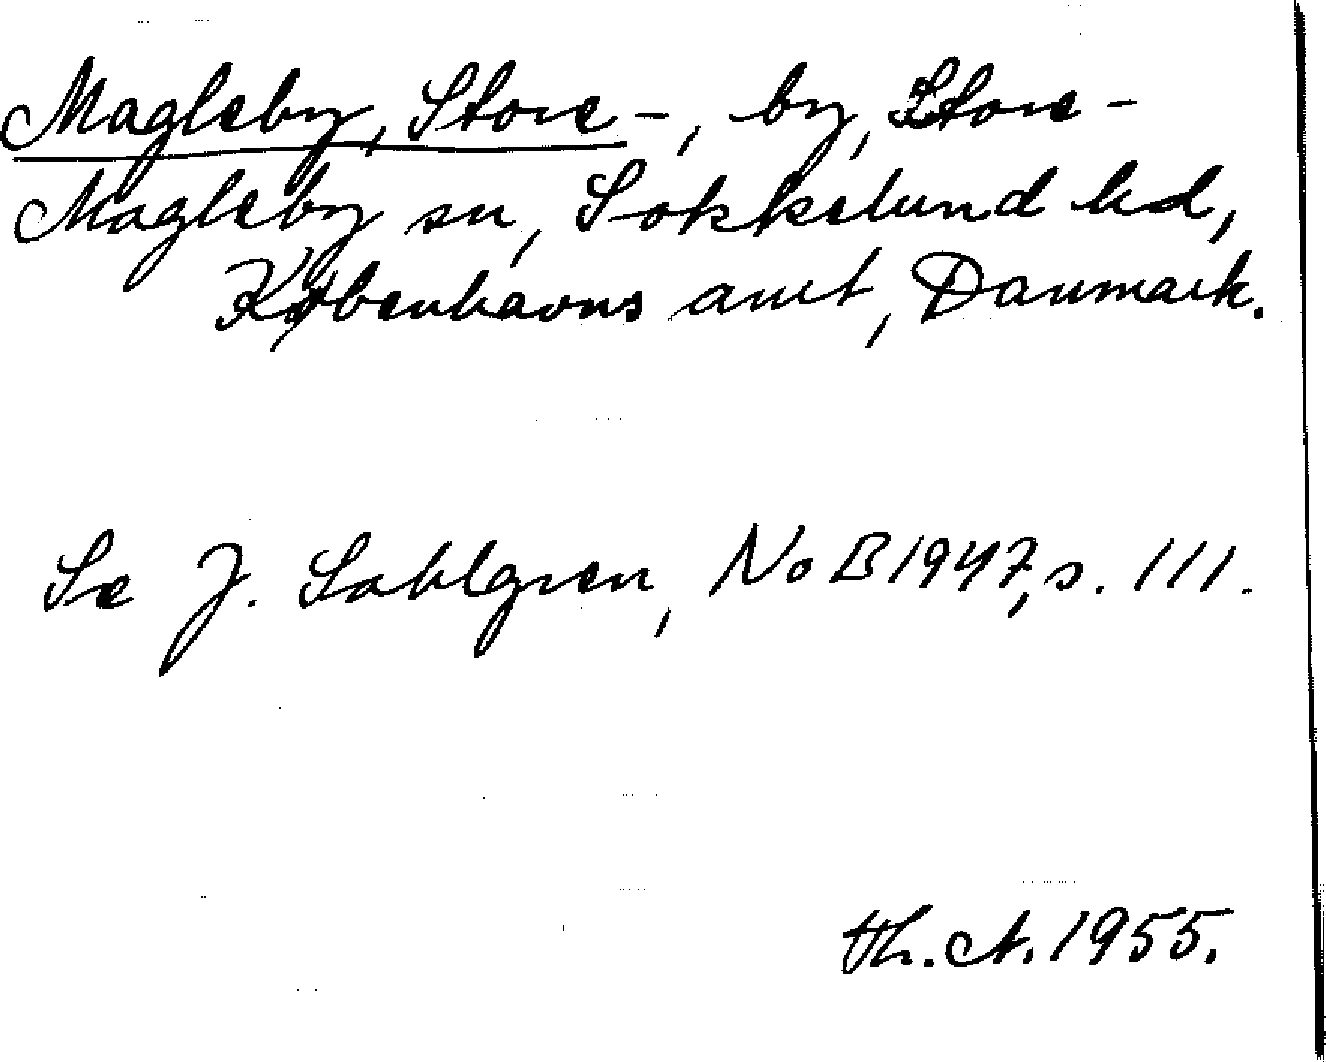 Magleby, Store-, by, Store-
Magleby sn, Sokkelund hd,
Københavns amt, Danmark.
Se J. Sahlgren, NoB 1947, s. 111.
Th. A. 1955.